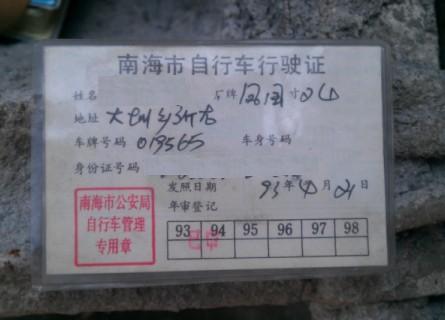 南海市自行车行驶证
姓名 厂牌 凤凰 寸
地址 大
车牌号码 019565 车身号码
身份证号码
发照日期 93年4月21日
年审登记
93 94 95 96 97 98
南海市公安局
自行车管理
专用章